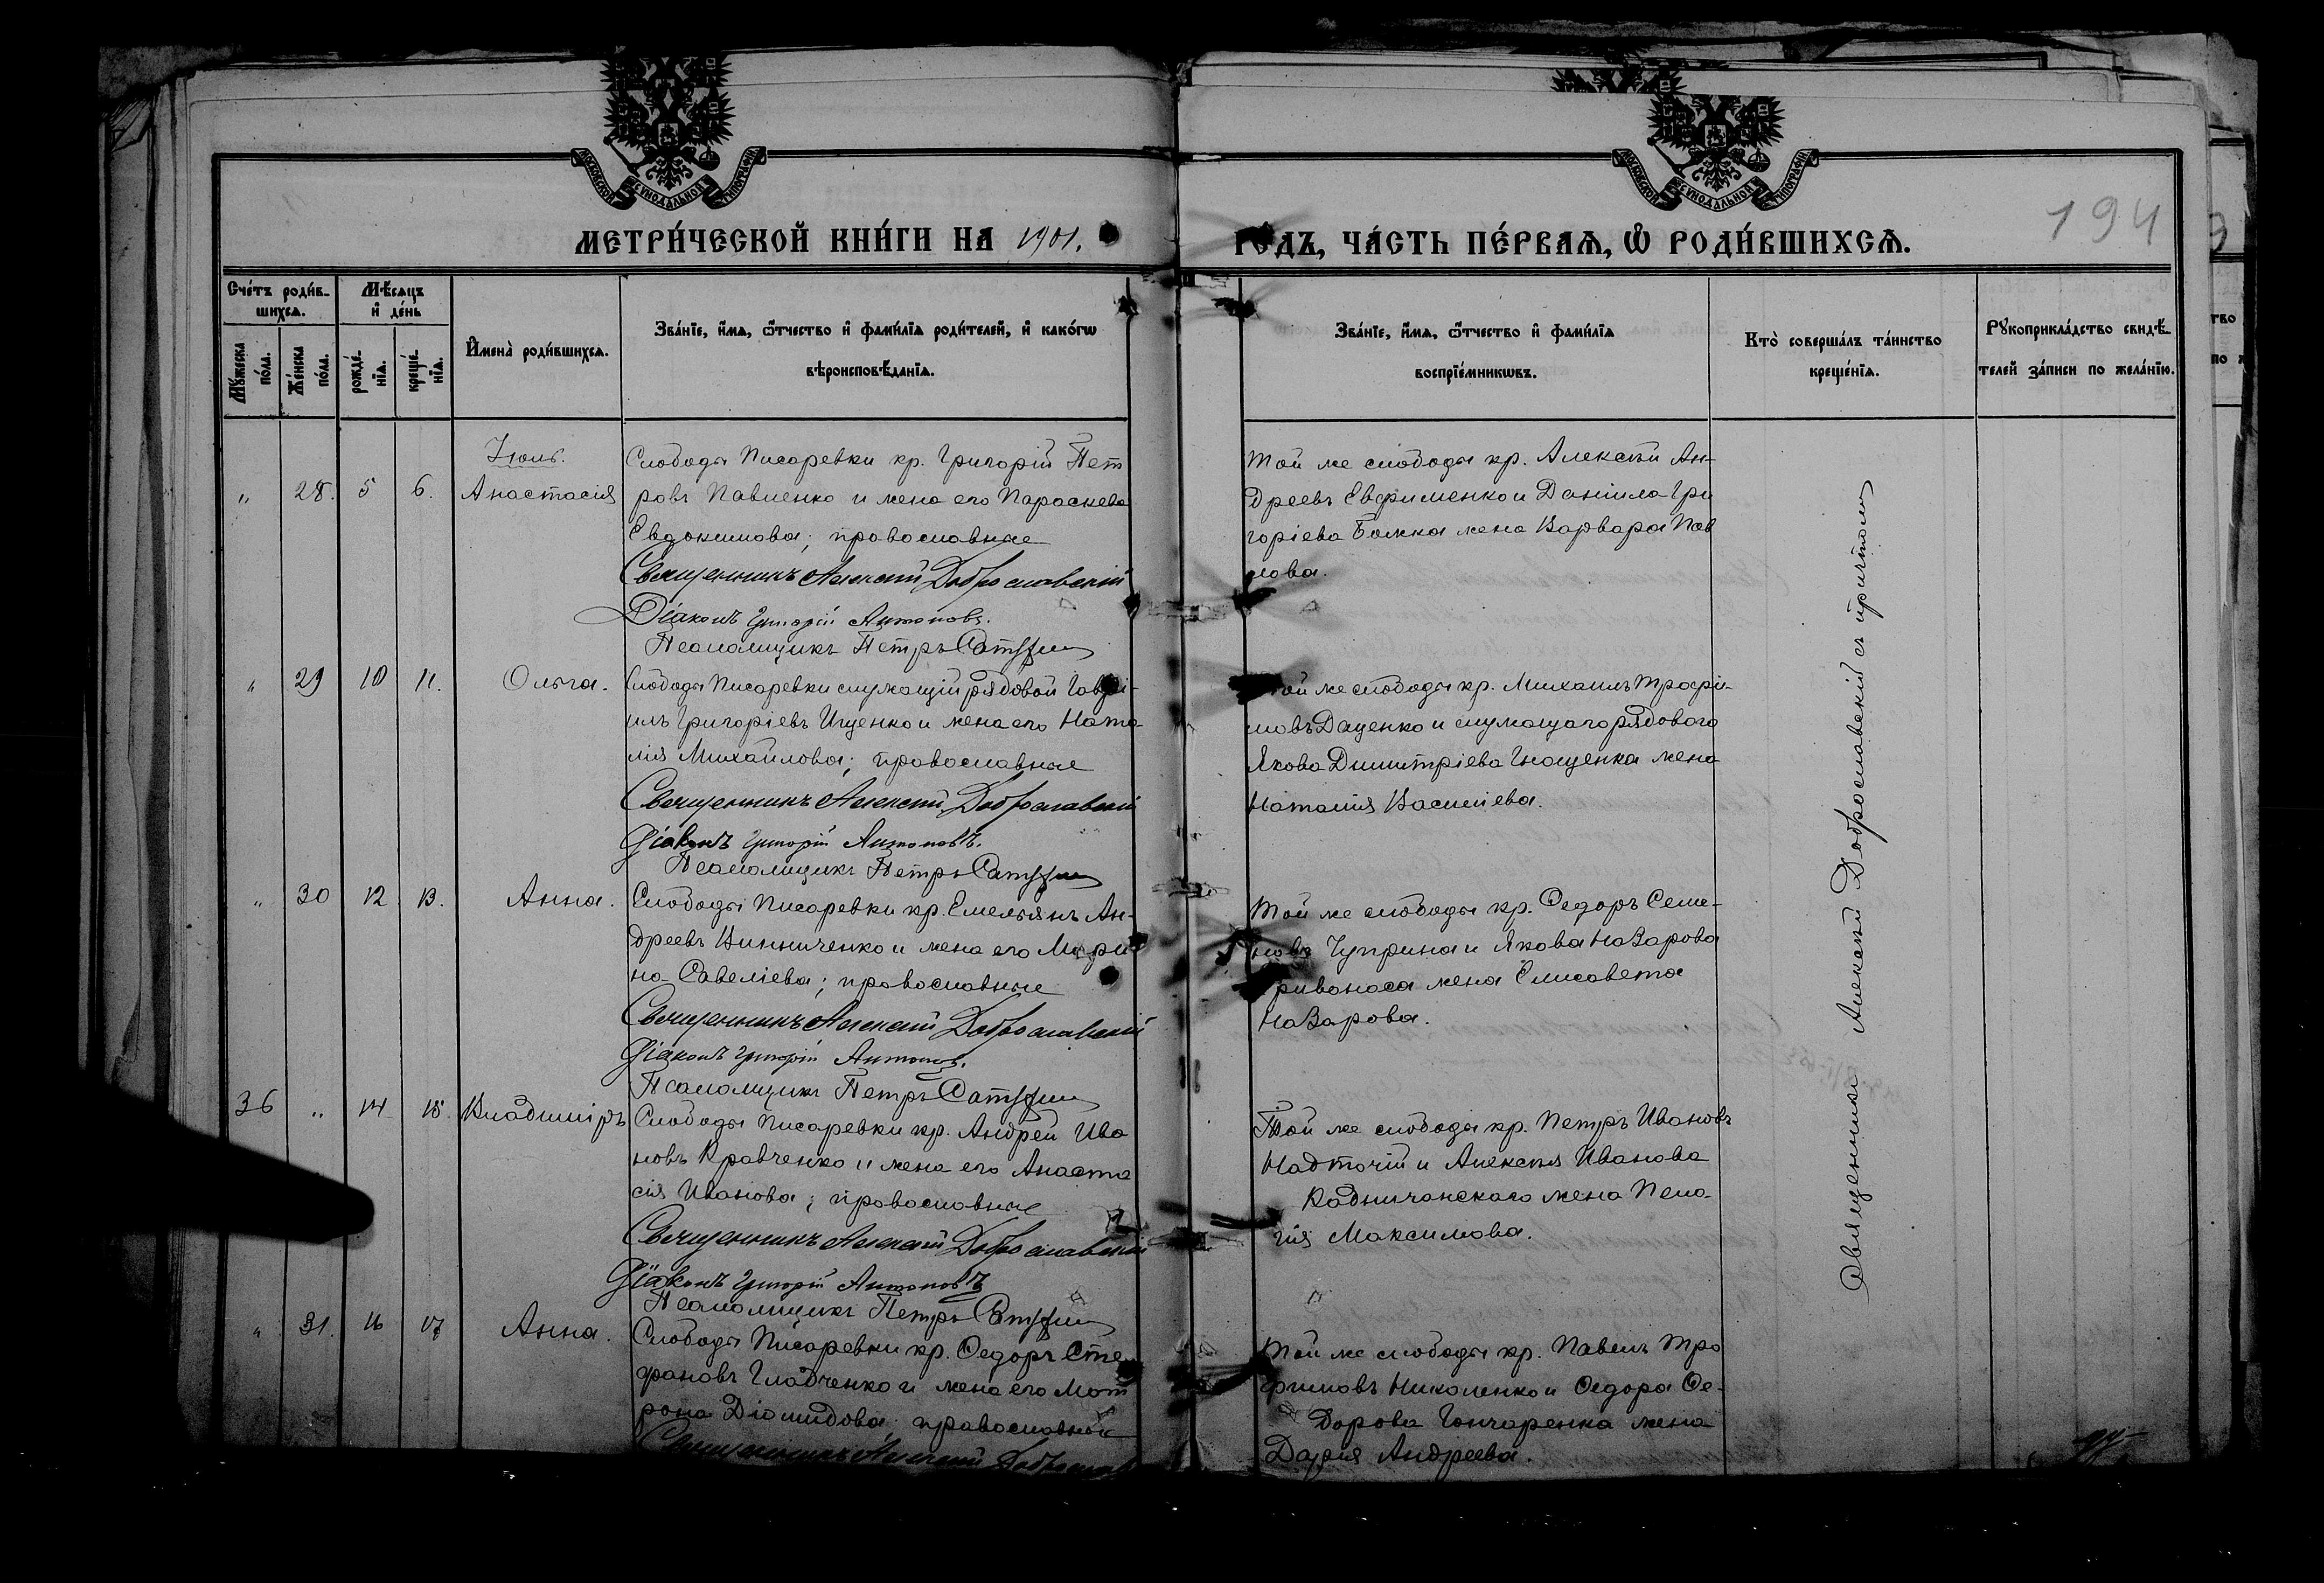 МОСКОВСКОЙ СѴНОДАЛЬНОЙ ТИПОГРАФІИ
МОСКОВСКОЙ СѴНОДАЛЬНОЙ ТИПОГРАФІИ
194
МЕТРИ́ЧЕСКОЙ КНИ́ГИ НА 1901. ГО́ДЪ, ЧА́СТЬ ПЕ́РВАѦ, Ѽ РОДИ́ВШИХСѦ.
Сче́тъ роди́в-
шихсѧ.
Мѣ́сѧцъ
и҆ де́нь
Мꙋ́жеска по́ла.
Же́нска по́ла.
рожде́-
нїѧ.
креще́-
нїѧ.
И҆мена̀ роди́вшихсѧ.
Зва́нїе, и҆́мѧ, ѻ҆́тчество и҆ фами́лїѧ роди́телей, и҆ како́гѡ
вѣроисповѣ́данїѧ.
Зва́нїе, и҆́мѧ, ѻ҆́тчество и҆ фами́лїѧ
воспрїе́мникѡвъ.
Кто̀ соверша́лъ та́инство
креще́нїѧ.
Рꙋкоприкла́дство свидѣ́-
телей за́писи по жела́нїю.
Іюль.
" 28. 5 6. Анастасія
Слободы Писаревки кр. Григорій Пет
ровъ Павленко и жена его Параскева
Евдокимова; православные
Священникъ Алексій Доброславскій
Діаконъ Григорій Антоновъ.
Псаломщикъ Петръ
Той же слободы кр. Алексѣй Ан-
дреевъ Евфименко и Даніила Гри
горіева Божка жена Варвара Пав
лова.
" 29 10 11. Ольга.
Слободы Писаревки служащій рядовой Гаврі-
илъ Григоріевъ Ищенко и жена его Ната-
лія Михайлова; православные
Священникъ Алексій Доброславскій
Діаконъ Григорій Антоновъ.
Псаломщикъ Петръ
Той же слободы кр. Михаилъ Трофи-
мовъ Даценко и служащаго рядового
Якова Димитріева Гнощенка жена
Наталія Василіева.
" 30 12 13. Анна.
Слободы Писаревки кр. Емельянъ Ан-
дреевъ Винниченко и жена его Мари
на Савеліева; православные
Священникъ Алексій Доброславскій
Діаконъ Григорій Антоновъ.
Псаломщикъ Петръ
Той же слободы кр. Ѳедоръ Семе-
новъ Чуприна и Якова Назарова
Кривоноса жена Елисавета
Назарова.
36 " 14 15. Владиміръ
Слободы Писаревки кр. Андрей Ива
новъ Кравченко и жена его Анаста
сія Иванова; православные
Священникъ Алексій Доброславскій
Діаконъ Григорій Антоновъ
Псаломщикъ Петръ
Той же слободы кр. Петръ Ивановъ
Надточій и Алексѣя Иванова
Кадничанскаго жена Пела-
гія Максимова.
" 31. 16 17 Анна.
Слободы Писаревки кр. Ѳедоръ Сте
фановъ Гладченко и жена его Мат
рона Діомидова; православные
Священникъ Алексій
Той же слободы кр. Павелъ Тро
фимовъ Николенко и Ѳедора Ѳе-
дорова Гончаренка жена
Дарія Андреева.
Священникъ Алексій Доброславскій съ причтомъ